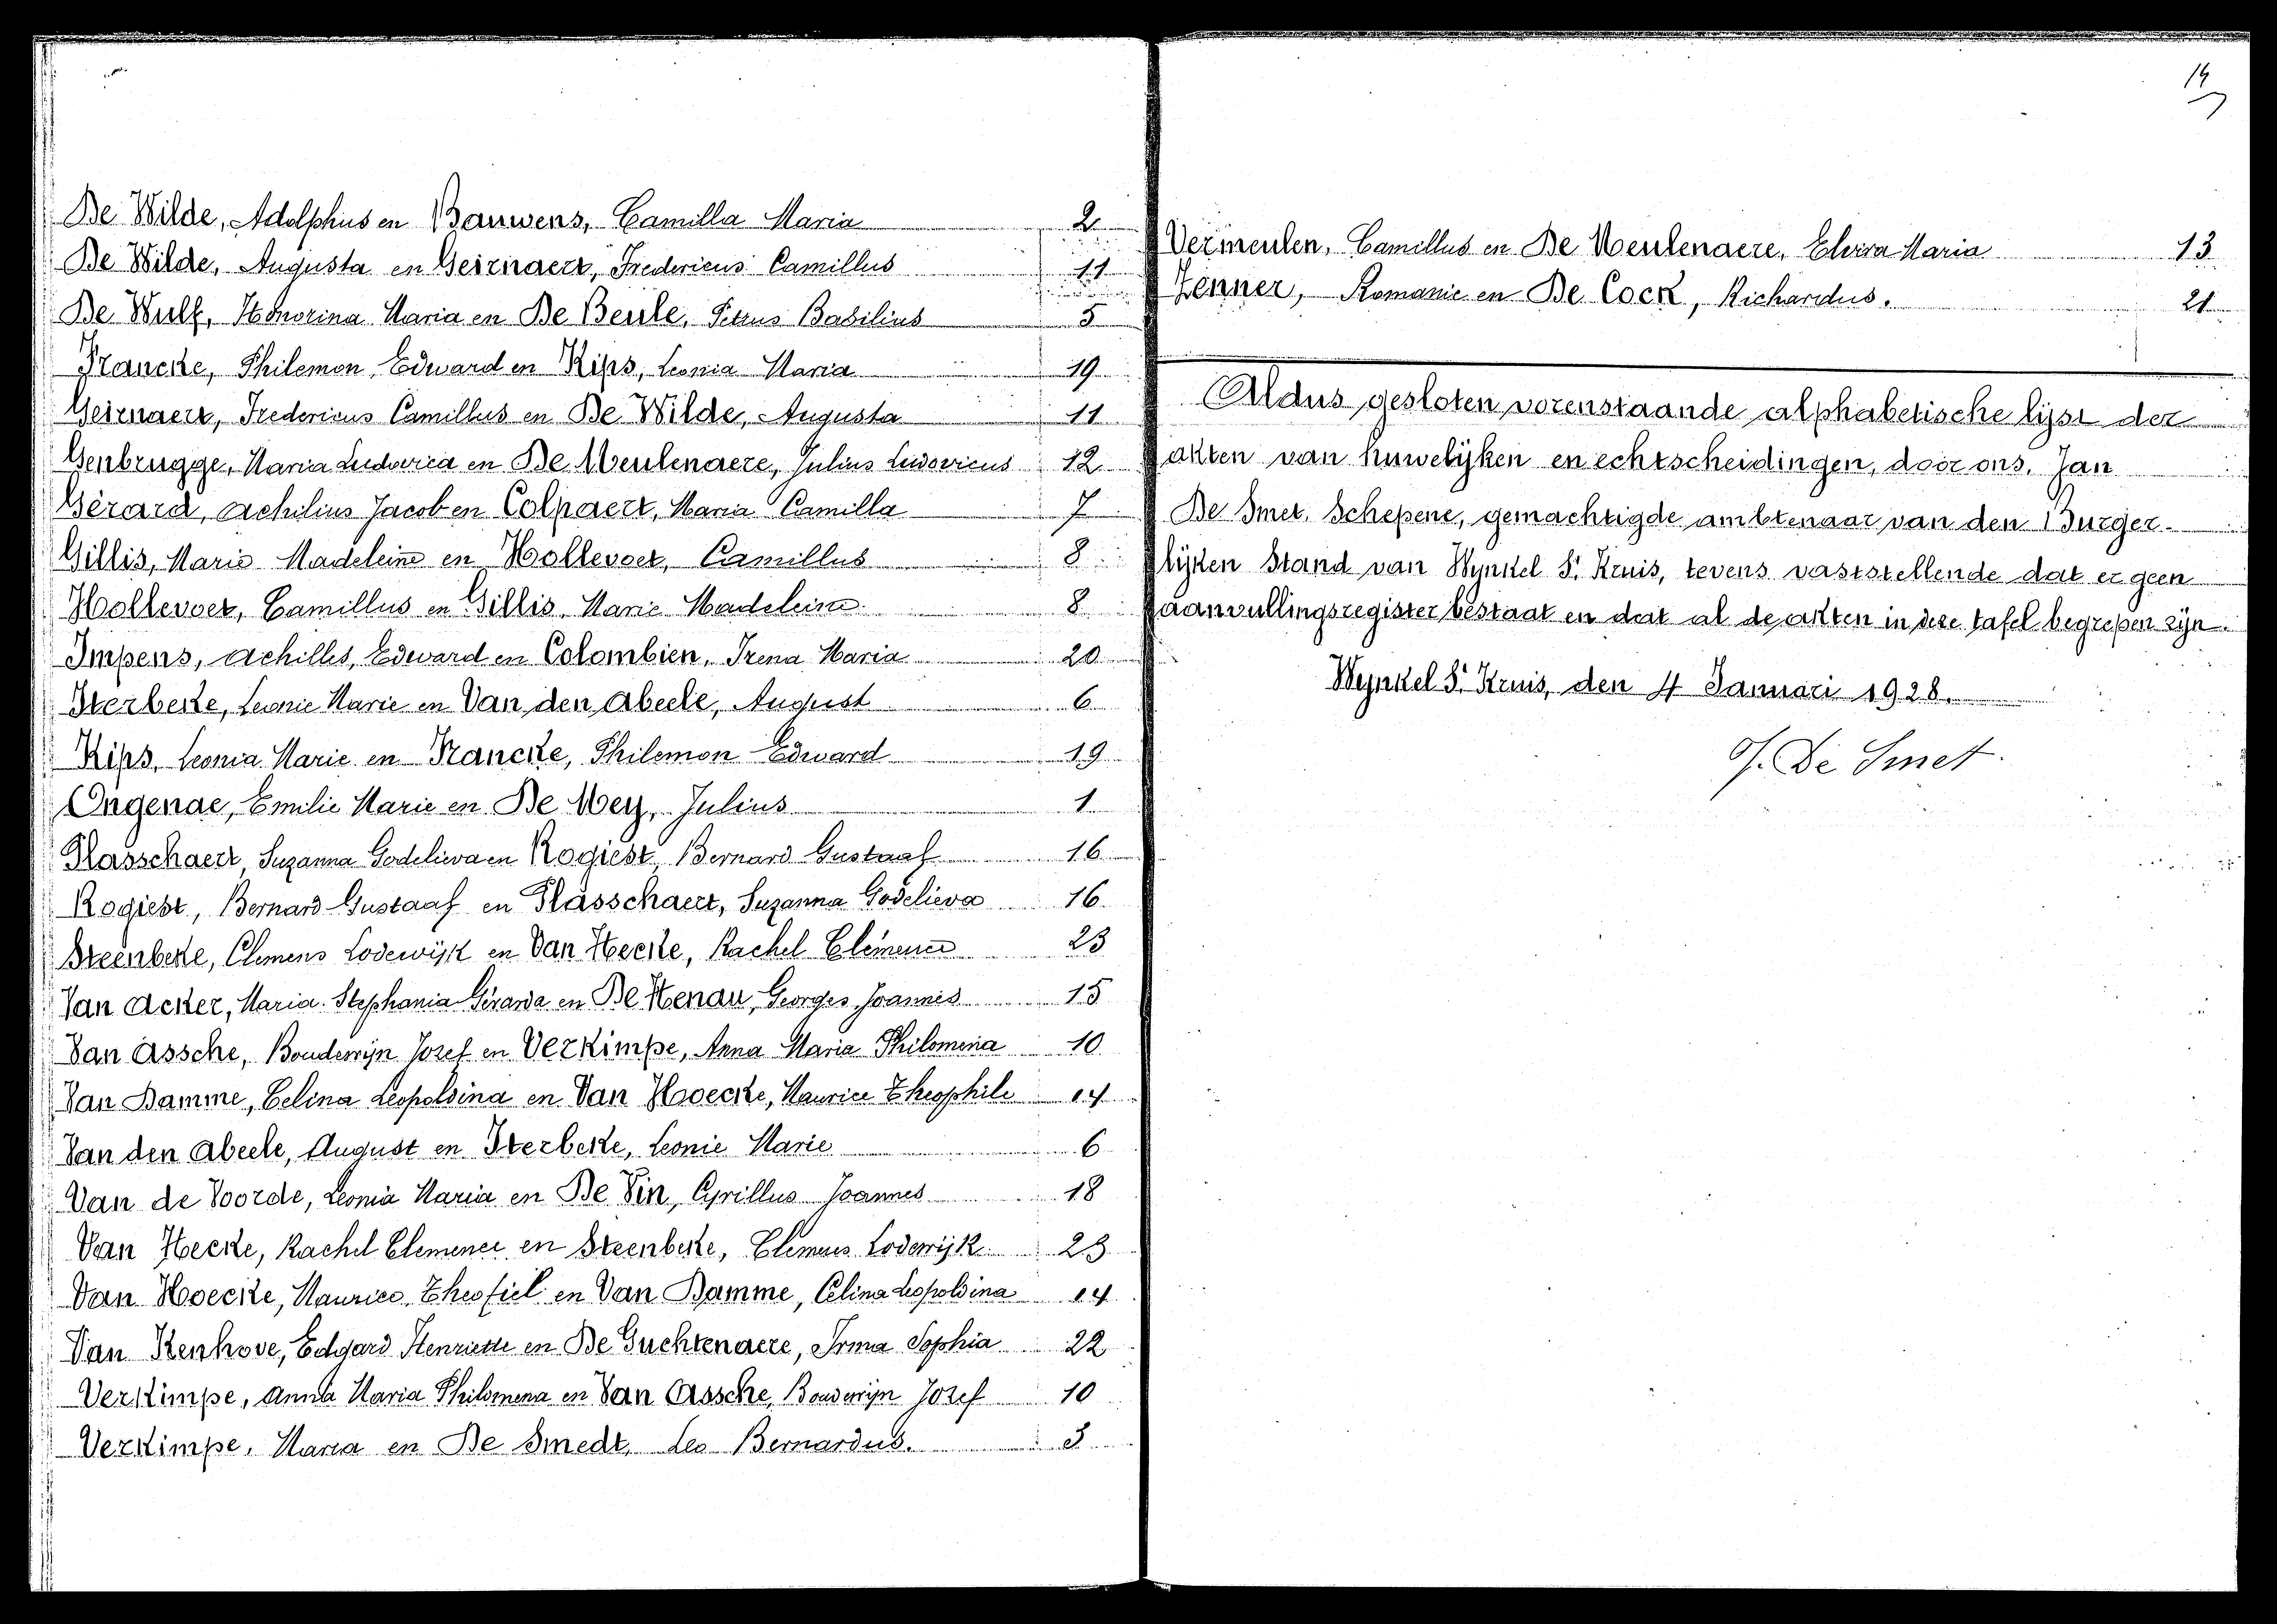 De Wilde, Adolphus en Bauwens, Camilla Maria 2
De Wilde, Augusta en Geirnaert, Fredericus Camillus 11
De Wulf, Honorina Maria en De Beule, Petrus Basilius 5
Francke, Philemon Edward en Kips, Leonia Maria 19
Geirnaert, Fredericus Camillus en De Wilde, Augusta 11
Genbrugge, Maria Ludovica en De Meulenaere, Julius Ludovicus 12
Gérard, Achilius Jacob en Colpaert, Maria Camilla 7
Gillis, Marie Madeleine en Hollevoet, Camillus 8
Hollevoet, Camillus en Gillis, Marie Madeleine 8
Impens, Achilles, Edward en Colombien, Irena Maria 20
Sterbeke, Leonie Marie en Van den Abeele, August 6
Kips, Leonia Marie en Francke, Philemon Edward 19
Ongenae, Emilie Marie en De Mey, Julius 1
Plasschaert, Suzanna Godelieva en Rogiest, Bernard Gustaaf 16
Rogiest, Bernard Gustaaf en Plasschaert, Suzanna Godelieva 16
Steenbeke, Clemens Lodewijk en Van Hecke, Rachel Clemence 23
Van Acker, Maria Stephania Gérarda en De Henau, Georges Joannes 15
Van Assche, Boudewijn Jozef en Verkimpe, Anna Maria Philomena 10
Van Damme, Celina Leopoldina en Van Hoecke, Maurice Theophile 14
Van den Abeele, August en Sterbeke, Leonie Marie 6
Van de Voorde, Leonia Maria en De Pin, Cyrillus Joannes 18
Van Hecke, Rachel Clemence en Steenbeke, Clemens Lodewijk 23
Van Hoecke, Maurice Theofiel en Van Damme, Celina Leopoldina 14
Van Kenhove, Edgard Henriette en De Guchtenaere, Irma Sophia 22
Verkimpe, Anna Maria Philomena en Van Assche, Boudewijn Jozef 10
Verkimpe, Maria en De Smedt, Leo Bernardus. 3
14
Vermeulen, Camillus en De Meulenaere, Elvira Maria 13
Zenner, Romanie en De Cock, Richardus. 21
Aldus gesloten vorenstaande alphabetische lijst der
akten van huwelijken en echtscheidingen, door ons, Jan
De Smet, Schepene, gemachtigde ambtenaar van den Burger-
lijken Stand van Wynkel St Kruis, tevens vaststellende dat er geen
aanvullingsregister bestaat en dat al de akten in deze tafel begrepen zijn.
Wynkel St Kruis, den 4 Januari 1928.
J. De Smet